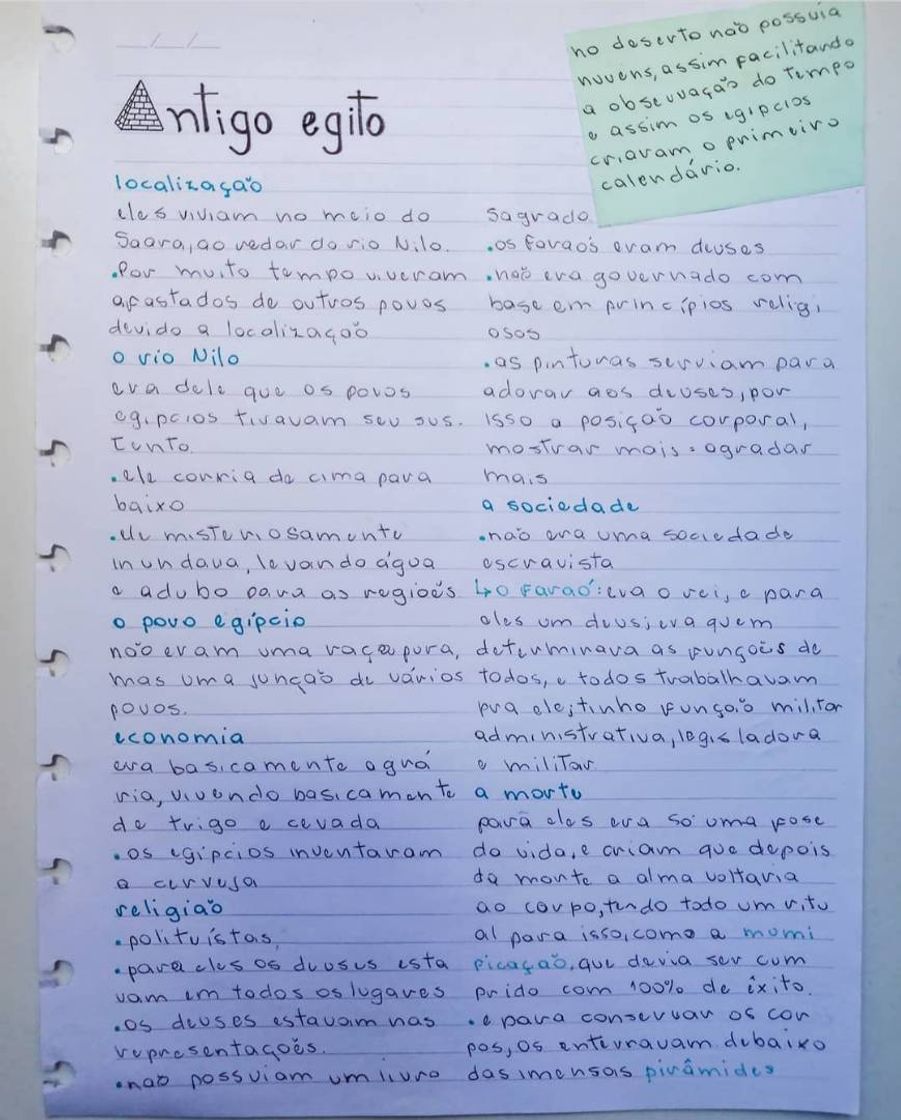 no deserto não possuia
nuvens, assim facilitando
a observação do tempo
e assim os egipcios
criaram o primeiro
calendário.
Antigo egito
localização
eles viviam no meio do
Saara, ao redor do rio Nilo.
.Por muito tempo viveram
afastados de outros povos
devido a localização
o rio Nilo
era dele que os povos
egipcios tiravam seu sus.
tento.
.ele corria de cima para
baixo
.ele misteriosamente
inundava, levando água
e adubo para as regioẽs
o povo egípcio
não eram uma raça pura,
mas uma junção de vários
povos.
economia
era basicamente agrá
ria, vivendo basicamente
de trigo e cevada
.os egipcios inventaram
a cerveja
religião
.politeístas,
.para eles os deuses esta
vam em todos os lugares
.os deuses estavam nas
representações.
.não possuiam um livro
Sagrado
.os faraós eram deuses
.não era governado com
base em princípios religi
osos
.as pinturas serviam para
adorar aos deuses, por
isso a posição corporal,
mostrar mais = agradar
mais
a sociedade
.não era uma sociedade
escravista
↳o faraó: era o rei, e para
eles um deus; era quem
determinava as funções de
todos, e todos trabalhavam
pra ele; tinha função militar
administrativa, legisladora
e militar.
a morte
para eles era só uma fase
da vida, e criam que depois
da morte a alma voltaria
ao corpo, tendo todo um ritu
al para isso, como a mumi
ficação, que devia ser cum
prido com 100% de êxito.
.e para conservar os cor
pos, os enterravam debaixo
das imensas pirâmides